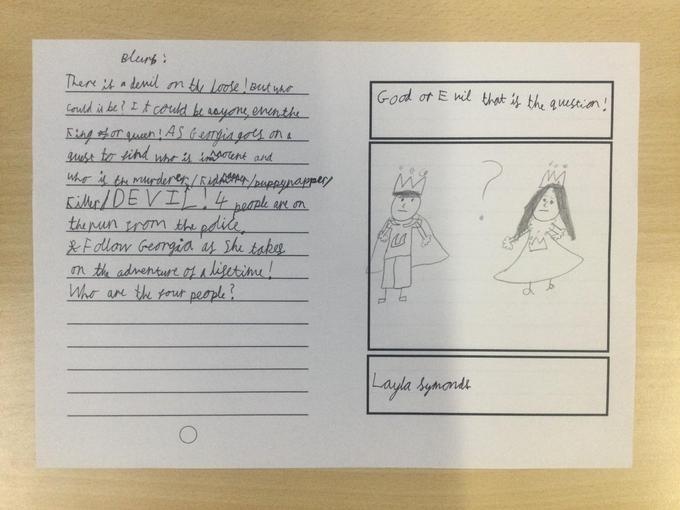 Blurb:
There is a devil on the loose! But who
could is be? It could be anyone, even the
King or queen! AS Georgia goes on a
quest to find who is innocent and
who is the murderer/ /puppynapper/
Killer/DEVIL! 4 people are on
the run from the police.
Follow Georgia as she takes
on the adventure of a lifetime!
Who are the four people?
Good or Evil that is the question!
?
Layla Symonds